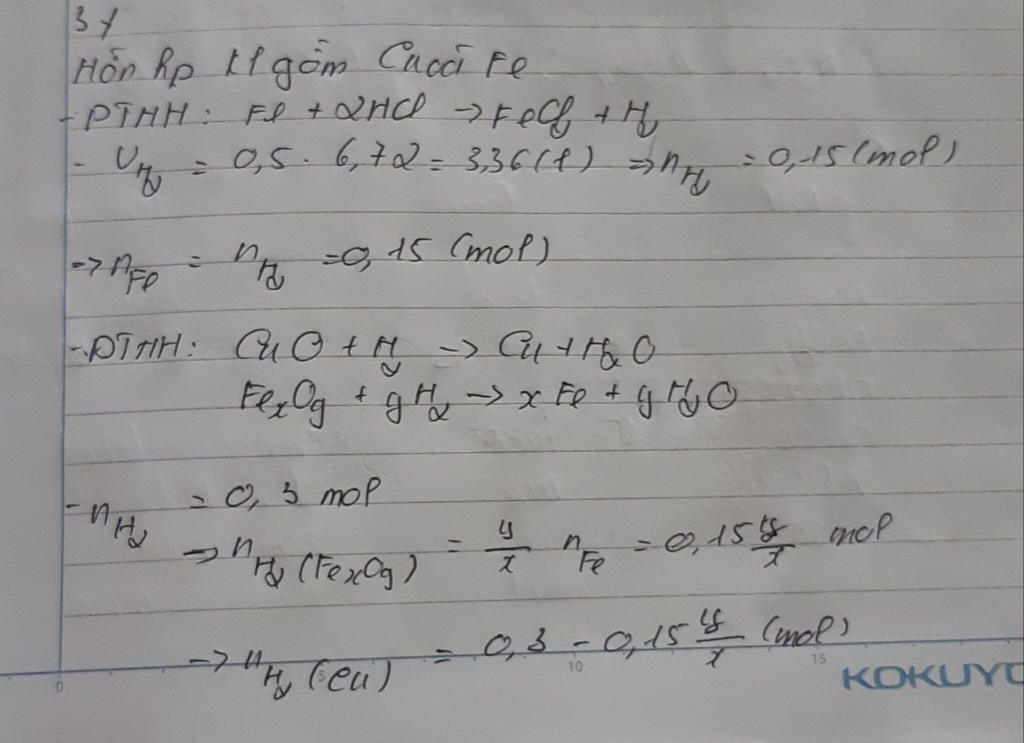 3 y
Hỗn hp Kl gồm Cu có Fe
- PTHH: Fe + 2HCl → FeCl₂ + H₂
- V_H₂ = 0,5 . 6,72 = 3,36(l) ⇒ n_H₂ = 0,15 (mol)
→ n_Fe = n_H₂ = 0,15 (mol)
- PTHH: CuO + H₂ → Cu + H₂O
FexOy + yH₂ → xFe + yH₂O
- n_H₂ = 0,3 mol
→ n_H₂ (FexOy) = y/x n_Fe = 0,15 y/x mol
→ n_H₂ (Cu) = 0,3 - 0,15 y/x (mol)
0 5 10 15 KOKUYO